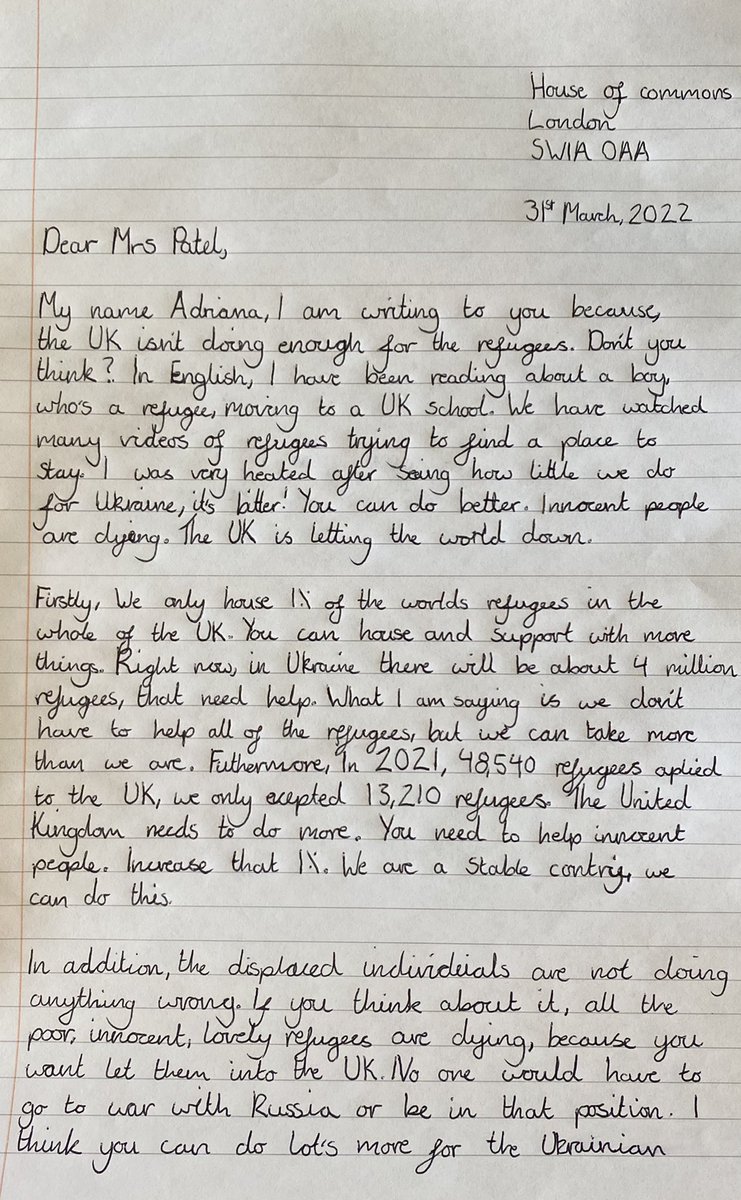 House of commons
London
SW1A OAA
31st March, 2022
Dear Mrs Patel,
My name Adriana, I am writing to you because,
the UK isn't doing enough for the refugees. Don't you
think? In English, I have been reading about a boy,
who's a refugee, moving to a UK school. We have watched
many videos of refugees trying to find a place to
stay. I was very heated after seing how little we do
for Ukraine, it's bitter! You can do better. Innocent people
are dyeng. The UK is letting the world down.
Firstly, We only house 1% of the worlds refugees in the
whole of the UK. You can house and support with more
things. Right now, in Ukraine there will be about 4 million
refugees, that need help. What I am saying is we don't
have to help all of the refugees, but we can take more
than we are. Futhermore, In 2021, 48,540 refugees aplied
to the UK, we only ecepted 13,210 refugees. The United
Kingdom needs to do more. You need to help innocent
people. Increase that 1%. We are a stable contriy, we
can do this.
In addition, the displaced individeials are not doing
anything wrong. If you think about it, all the
poor, innocent, lovely refugees are dying, because you
want let them into the UK. No one would have to
go to war with Russia or be in that position. I
think you can do lot's more for the Ukrainian